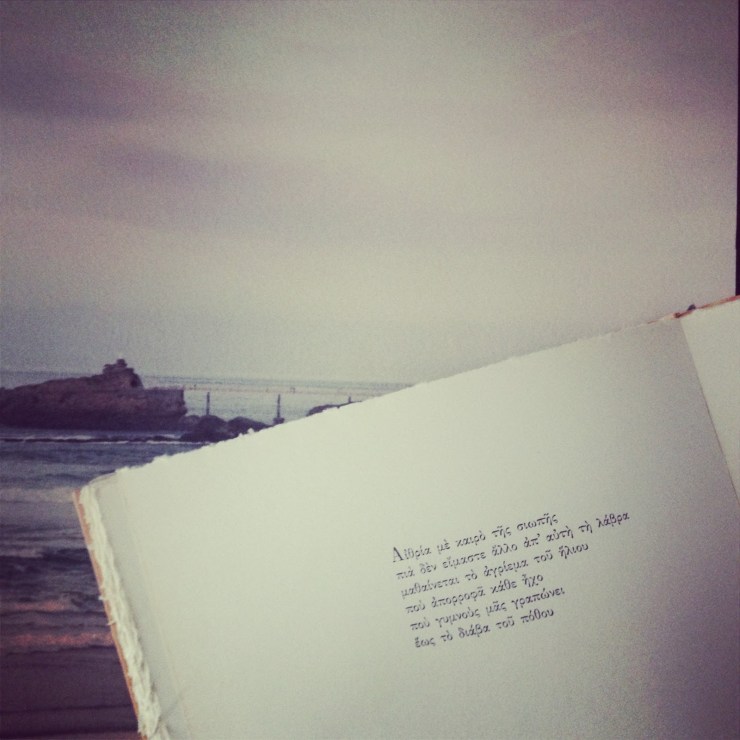 Αἰθρία μὲ καιρὸ τῆς σιωπῆς
πιὰ δὲν εἴμαστε ἄλλο ἀπ' αὐτὴ τὴ λάβρα
μαθαίνεται τὸ ἀγρίεμα τοῦ ἥλιου
ποὺ ἀπορροφᾶ κάθε ἦχο
ποὺ γυμνοὺς μᾶς γραπώνει
ἕως τὸ διάβα τοῦ πόθου